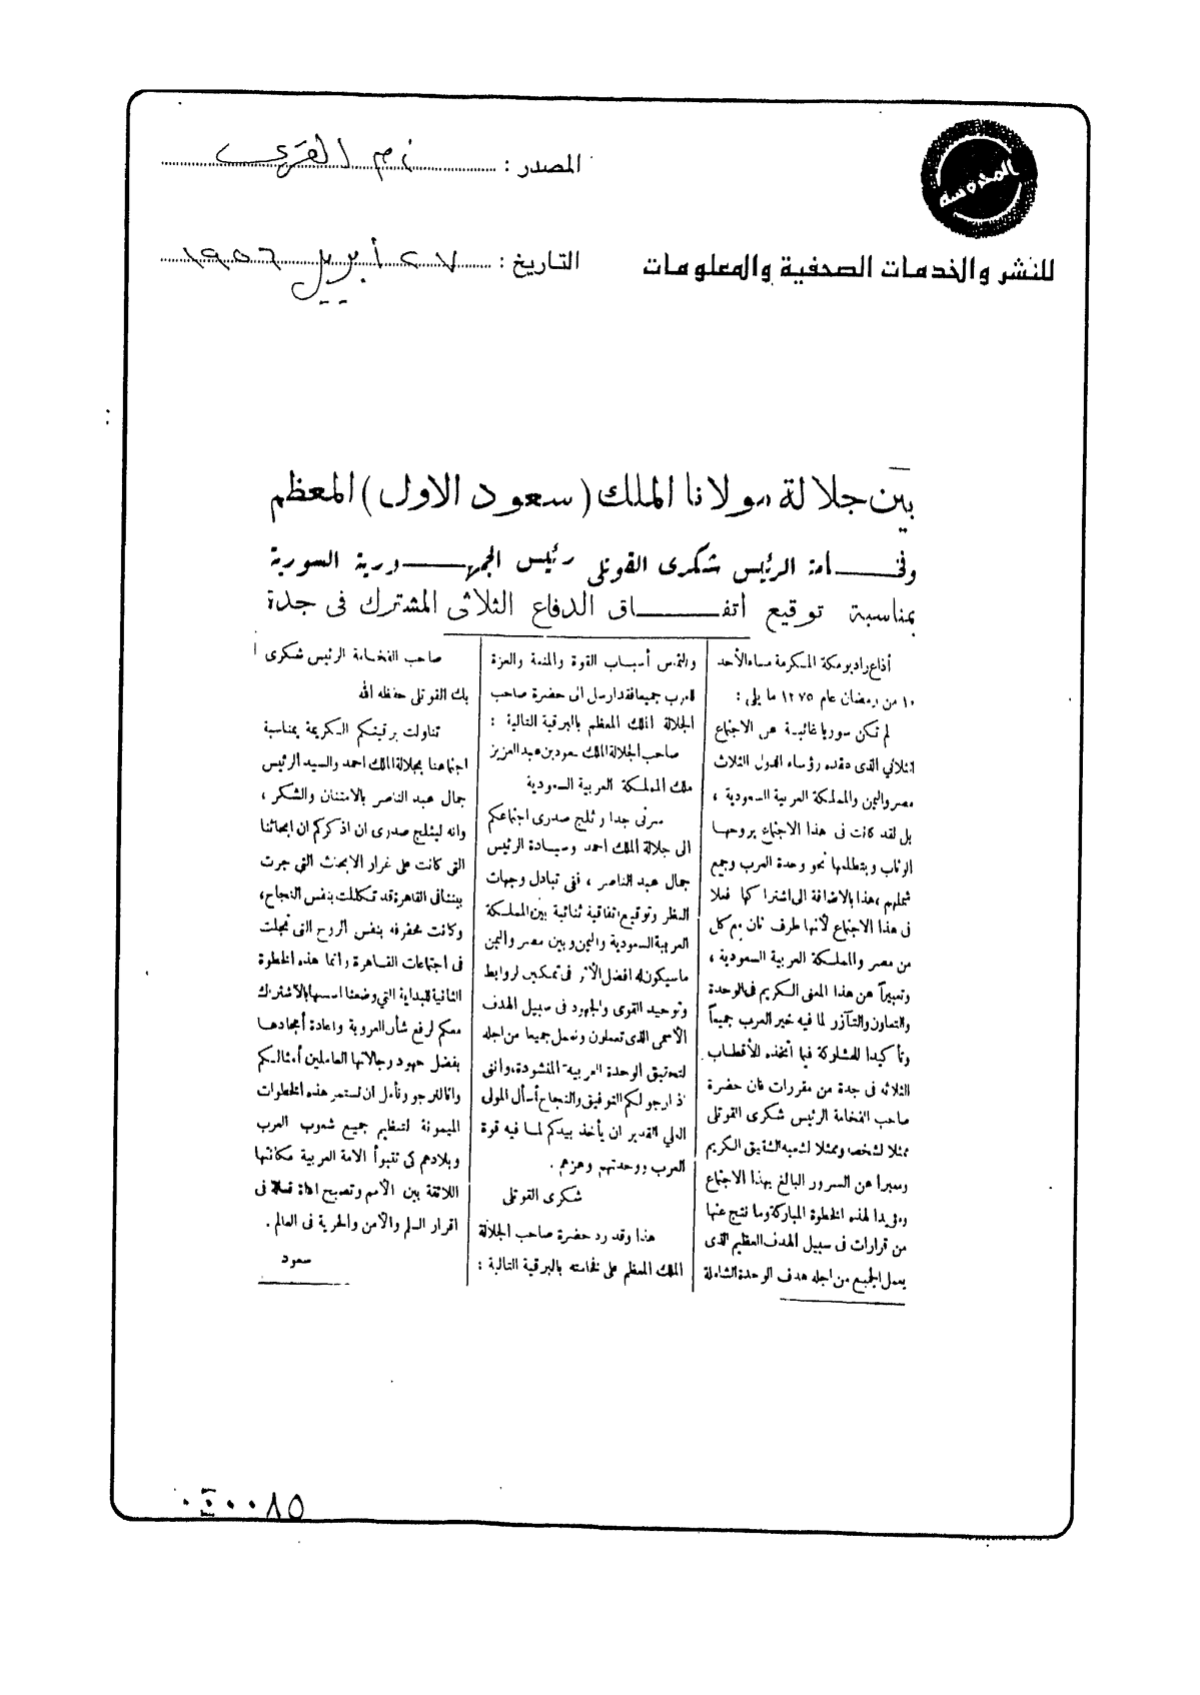 المحروسة
للنشر والخدمات الصحفية والمعلومات
المصدر : أم القرى
التاريخ : ٢٧ أبريل ١٩٥٦
بين جلالة مولانا الملك (سعود الاول) المعظم
وفخامة الرئيس شكرى القوتلى رئيس الجمهورية السورية
بمناسبة توقيع اتفاق الدفاع الثلاثى المشترك فى جدة
أذاع راديو مكة المكرمة مساء الأحد
١٠ من رمضان عام ١٣٧٥ ما يلى :
لم تكن سوريا غائبة عن الاجتماع
الثلاثي الذى عقده رؤساء الدول الثلاث
مصر واليمن والمملكة العربية السعودية ،
بل لقد كانت فى هذا الاجتماع بروحها
الوثاب وبتطلعها نحو وحدة العرب وجمع
شملهم ،هذا بالاضافة الى اشتراكها فعلا
فى هذا الاجتماع لأنها طرف ثان مع كل
من مصر والمملكة العربية السعودية ،
وتعبيراً عن هذا المعنى الكريم فى الوحدة
والتعاون والتآزر لما فيه خير العرب جميعاً
وتأكيدا للمشاركة فيما اتخذه الأقطاب
الثلاثه فى جدة من مقررات فان حضرة
صاحب الفخامة الرئيس شكرى القوتلى
ممثلا لشخصه وممثلا لشعبه الشقيق الكريم
ومعبرا عن السرور البالغ بهذا الاجتماع
ومؤيدا لهذه الخطوة المباركة وما نتج عنها
من قرارات فى سبيل الهدف العظيم الذى
يعمل الجميع من اجله هدف الوحدة الشاملة
والتماس أسباب القوة والمنعة والعزة
للعرب جميعا فقد ارسل الى حضرة صاحب
الجلالة الملك المعظم بالبرقية التالية :
صاحب الجلالة الملك سعود بن عبد العزيز
ملك المملكة العربية السعودية
سرنى جدا وثلج صدرى اجتماعكم
الى جلالة الملك احمد وسيادة الرئيس
جمال عبد الناصر ، ففى تبادل وجهات
النظر وتوقيع اتفاقية ثنائية بين المملكة
العربية السعودية واليمن وبين مصر واليمن
ما سيكون له افضل الأثر فى تمكين لروابط
وتوحيد القوى والجهود فى سبيل الهدف
الأسمى الذى تعملون ونعمل جميعا من اجله
لتحقيق الوحدة العربية المنشودة، وانى
اذ ارجو لكم التوفيق والنجاح أسأل المولى
العلي القدير ان يأخذ بيدكم لما فيه قوة
العرب ووحدتهم وعزهم .
شكرى القوتلى
هذا وقد رد حضرة صاحب الجلالة
الملك المعظم على فخامته بالبرقية التالية :
صاحب الفخامة الرئيس شكرى
بك القوتلى حفظه الله
تناولت برقيتكم الكريمة بمناسبة
اجتماعنا بجلالة الملك احمد والسيد الرئيس
جمال عبد الناصر بالامتنان والشكر ،
وانه ليثلج صدرى ان اذكركم ان ابحاثنا
التى كانت على غرار الابحث التي جرت
بيننا فى القاهرة قد تكللت بنفس النجاح،
وكانت محفوفه بنفس الروح التى تجلت
فى اجتماعات القاهرة وانما هذه الخطوة
الثانية للبداية التي وضعنا اسسها بالاشتراك
معكم لرفع شأن العروبة واعادة أمجادها
بفضل جهود رجالاتها العاملين أمثالكم
واننا لنرجو ونأمل ان تستمر هذه الخطوات
الميمونة لتنظيم جميع شعوب العرب
وبلادهم كى تتبوأ الامة العربية مكانتها
اللائقة بين الأمم وتصبح اداة فعالة فى
اقرار السلم والأمن والحرية فى العالم .
سعود